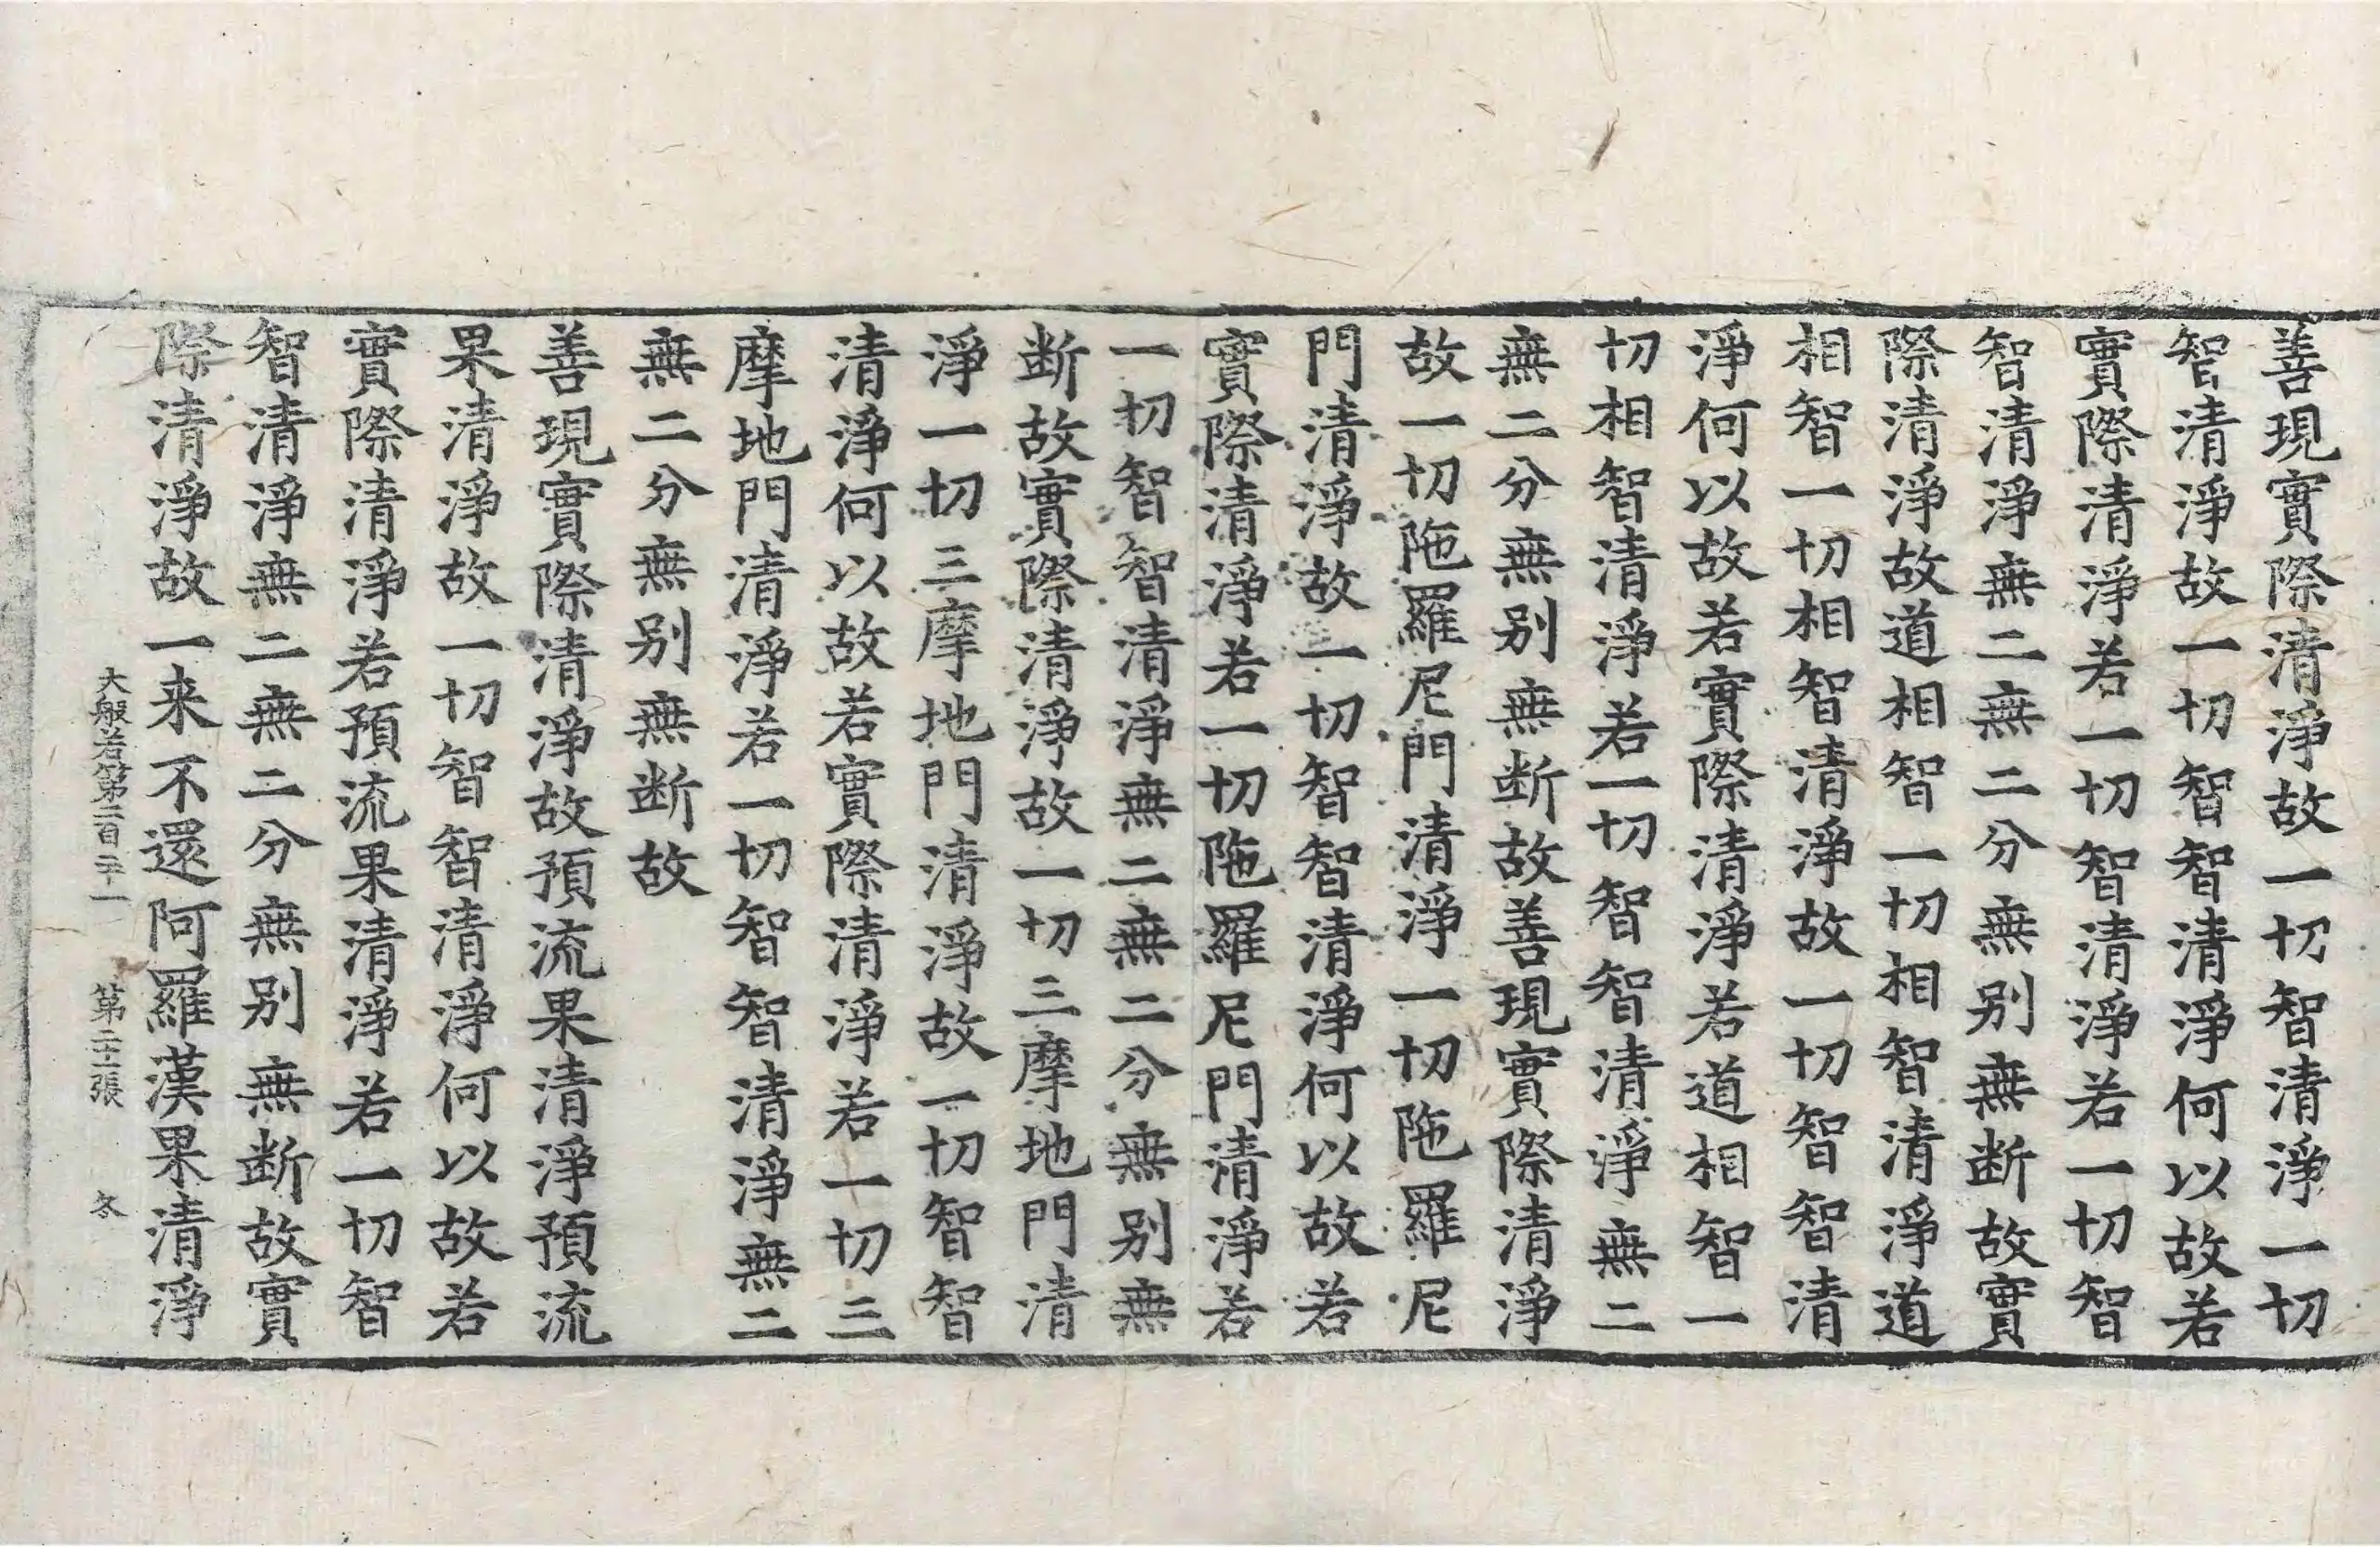 善現實際清淨故一切智清淨一切
智清淨故一切智智清淨何以故若
實際清淨若一切智清淨若一切智
智清淨無二無二分無别無断故實
際清淨故道相智一切相智清淨道
相智一切相智清淨故一切智智清
淨何以故若實際清淨若道相智一
切相智清淨若一切智智清淨無二
無二分無别無断故善現實際清淨
故一切陁羅尼門清淨一切陁羅尼
門清淨故一切智智清淨何以故若
實際清淨若一切陁羅尼門清淨若
一切智智清淨無二無二分無别無
断故實際清淨故一切三摩地門清
淨一切三摩地門清淨故一切智智
清淨何以故若實際清淨若一切三
摩地門清淨若一切智智清淨無二
無二分無别無断故
善現實際清淨故預流果清淨預流
果清淨故一切智智清淨何以故若
實際清淨若預流果清淨若一切智
智清淨無二無二分無别無断故實
際清淨故一来不還阿羅漢果清淨
大般若第二百二十一 第二十二張 冬